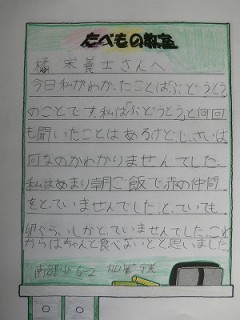 たべもの教室
栄養士さんへ
今日私がわかったことは「ぶどうとう」
のことです。私は「ぶどうとう」と何回
も聞いたことはあるけど、じっさいは
何なのかわかりませんでした。
私はあまり朝ご飯で赤の仲間
をとっていませんでした。とっていても
卵ぐらいしかとっていませんでした。これ
からはちゃんと食べないとと思いました。
5-2